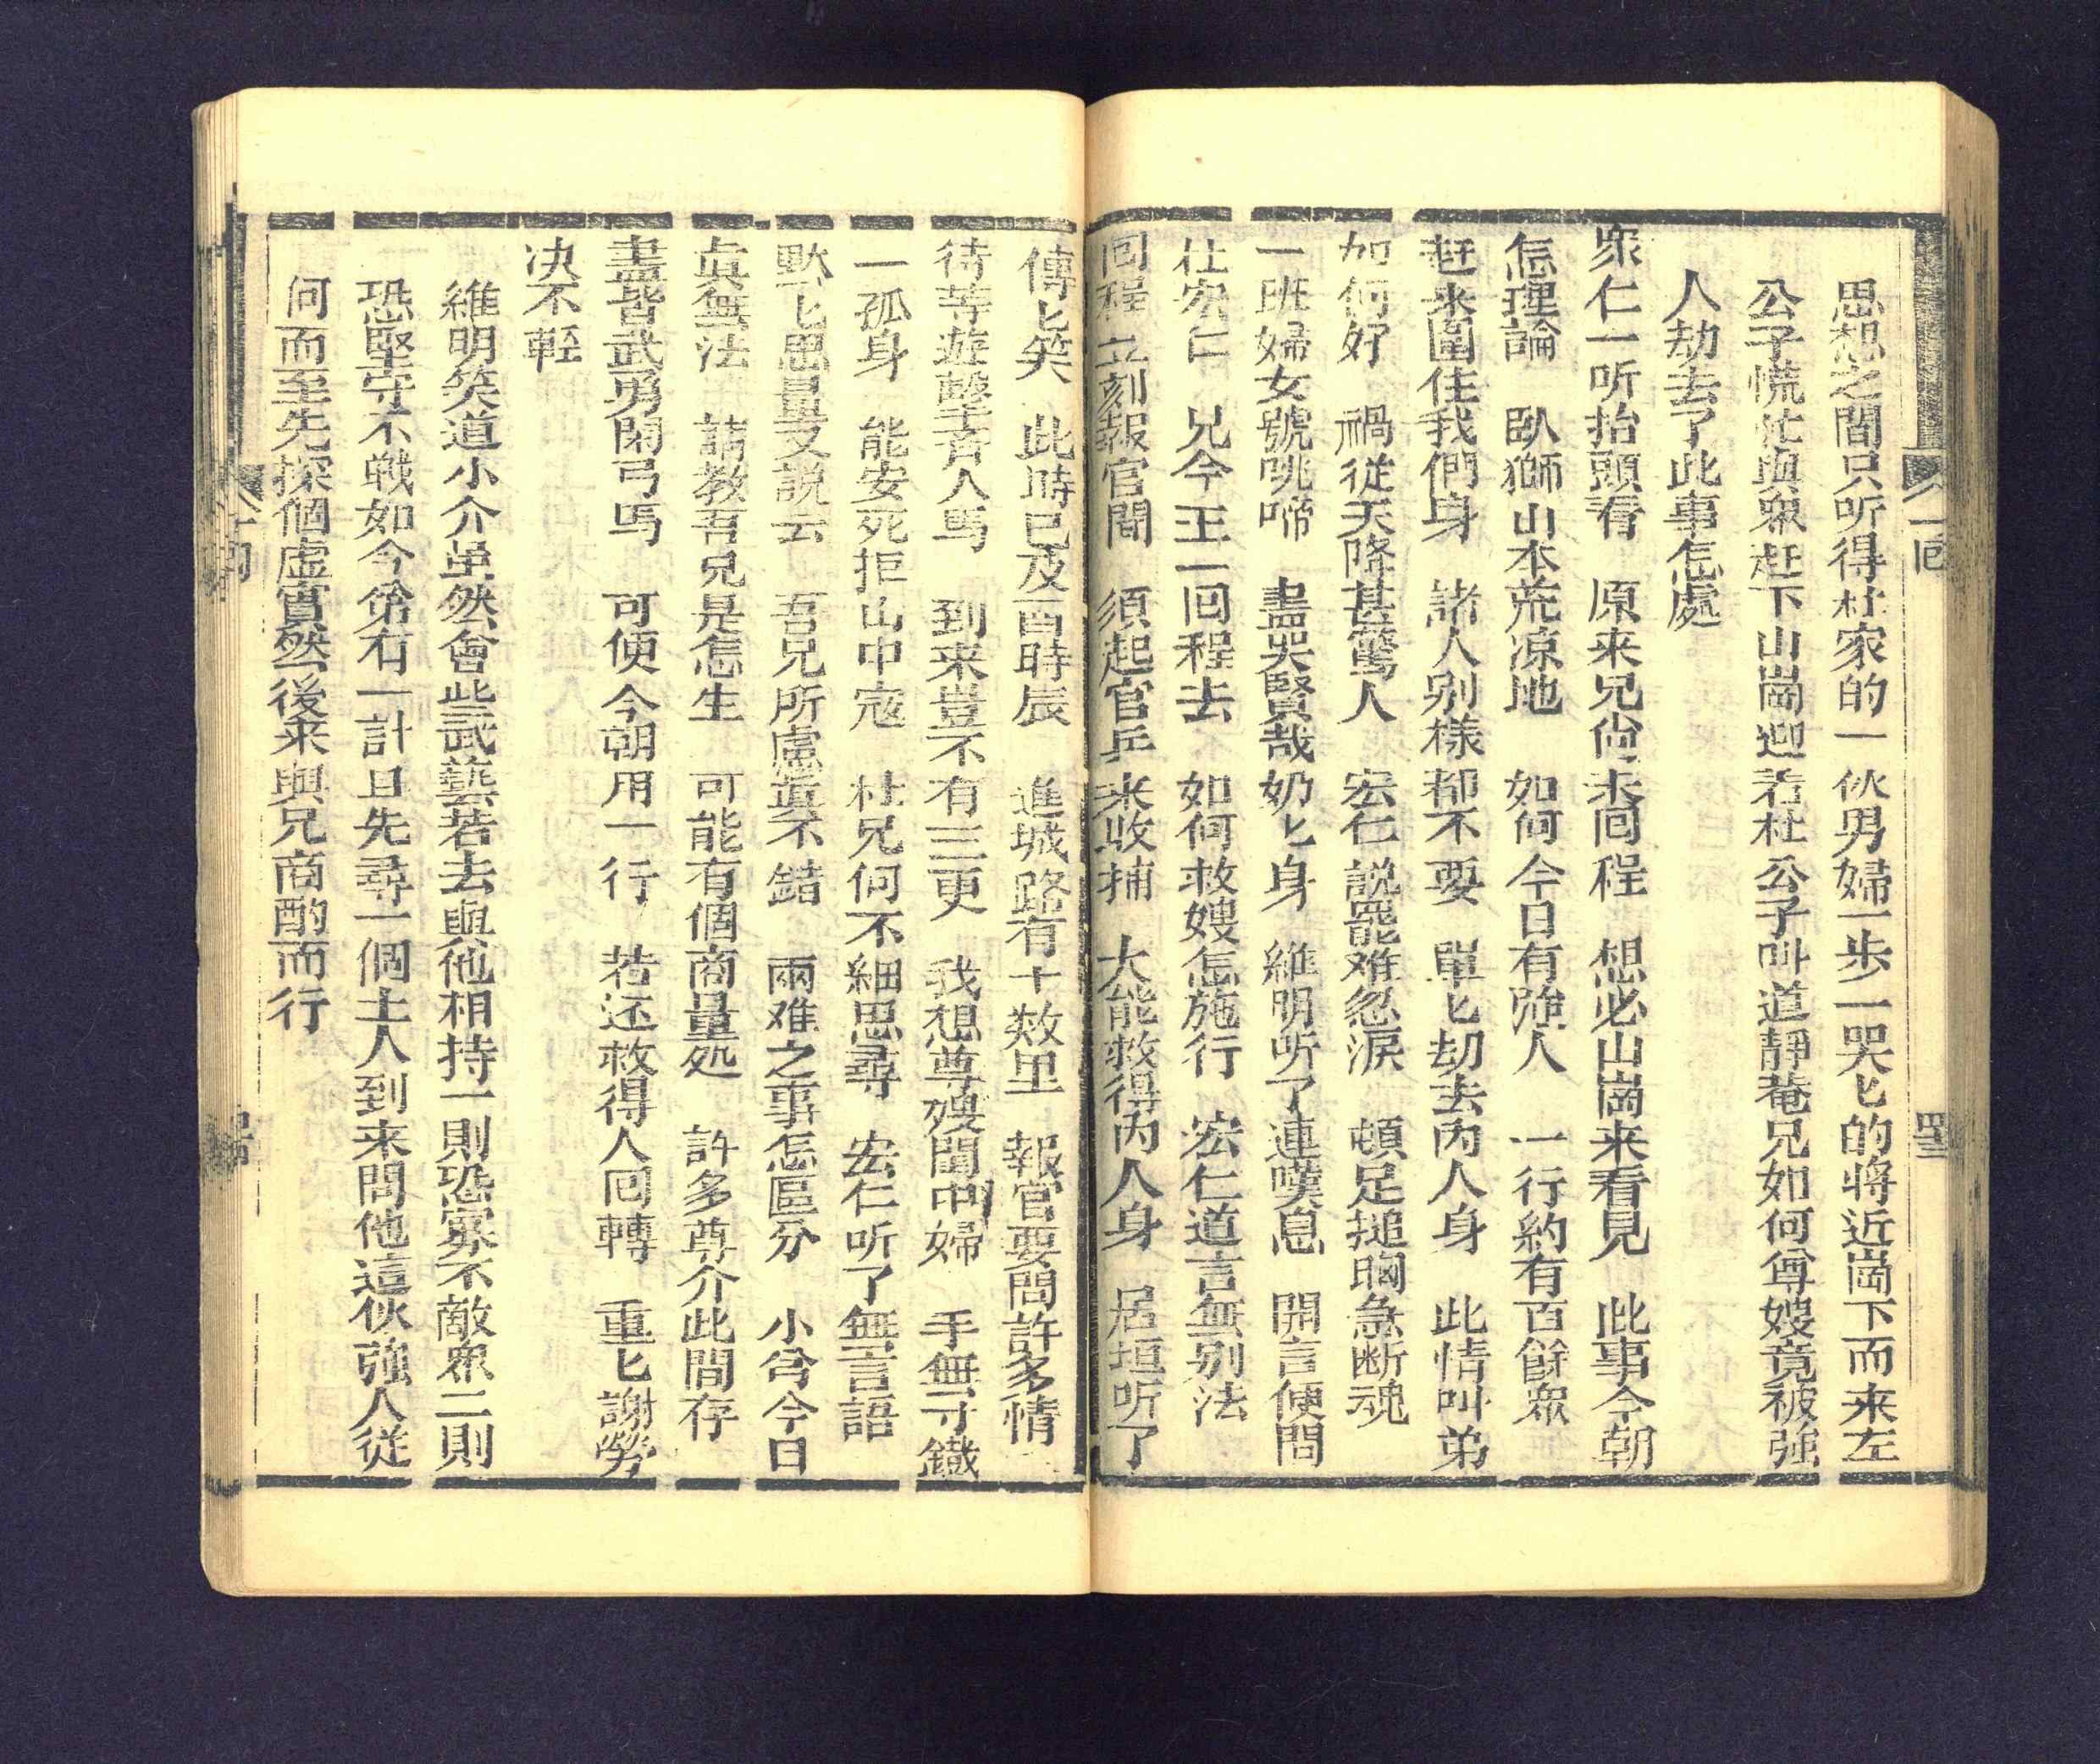 思想之間只听得杜家的一伙男婦一步一哭匕的将近崗下而来左
公子慌忙與衆赶下山崗迎着杜公子叫道靜菴兄如何尊嫂竟被强
人劫去了此事怎處
衆仁一听抬頭看　原来兄尚未囘程　想必山崗来看見　此事今朝
怎理論　臥獅山本荒凉地　如何今日有强人　一行約有百餘衆
赶来圍住我們身　諸人别樣都不要　單匕刧去内人身　此情叫弟
如何好　禍從天降甚驚人　宏仁説罷难忍淚　頓足搥胸急断魂
一班婦女號咷啼　盡哭賢哉奶匕身　維明听了連嘆息　開言便問
杜宏仁　兄今王一回程去　如何救嫂怎施行　宏仁道言無别法
回程立刻報官聞　須起官兵来收捕　大能救得内人身　居垣听了
傳匕笑　此時已及酉時辰　進城路有十数里　報官要問許多情
待等遊擊齊人馬　到来豈不有三更　我想尊嫂閨中婦　手無寸鐵
一孤身　能安死拒山中寇　杜兄何不細思尋　宏仁听了無言語
默匕思量又説云　吾兄所慮眞不錯　兩难之事怎區分　小兮今日
眞無法　請教吾兄是怎生　可能有個商量処　許多尊介此間存
盡皆武勇閑弓馬　可使今朝用一行　若还救得人回轉　重匕謝勞
决不輕
維明笑道小介虽然會些武藝若去與他相持一則恐寡不敵衆二則
恐堅守不戰如今第有一計且先尋一個土人到来問他這伙强人從
何而至先探個虛實然後来與兄商酌而行
一囘